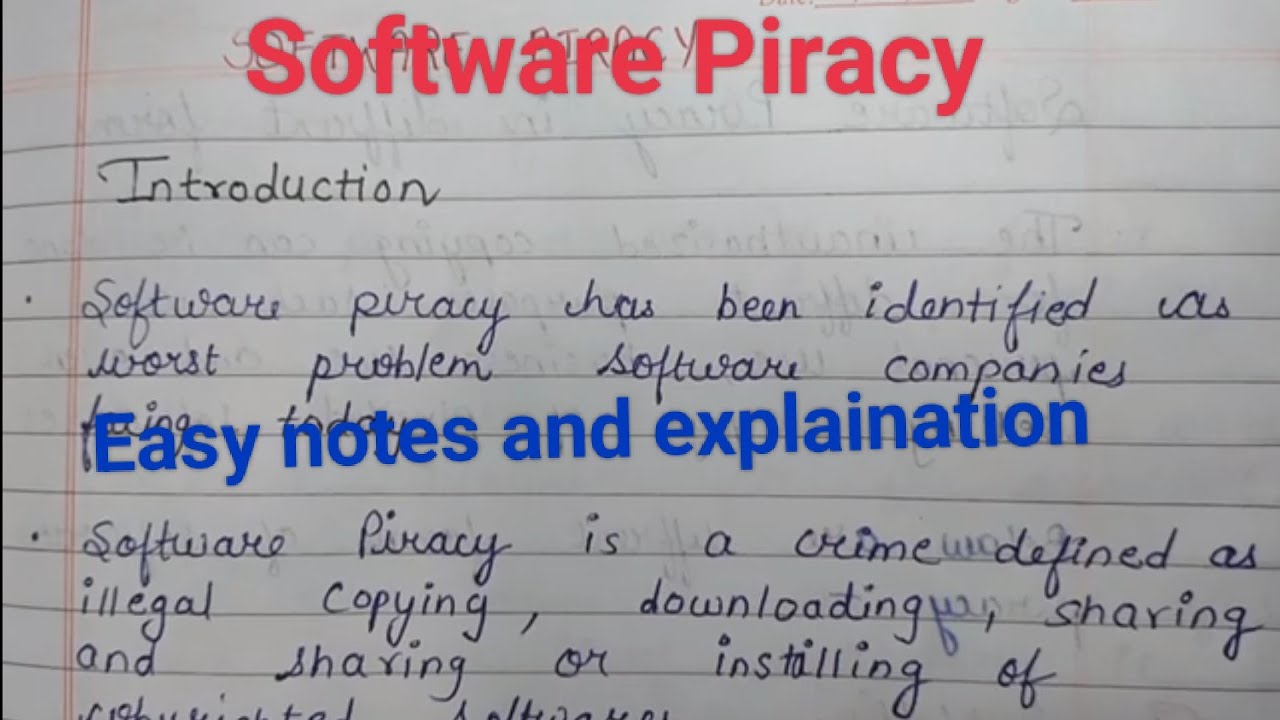 Date:
SOFTWARE PIRACY
Software Piracy
Introduction
· Software piracy has been identified as
worst problem software companies
facing today
Easy notes and explaination
· Software Piracy is a crime defined as
illegal copying, downloading, sharing
and sharing or installing of
copyrighted software